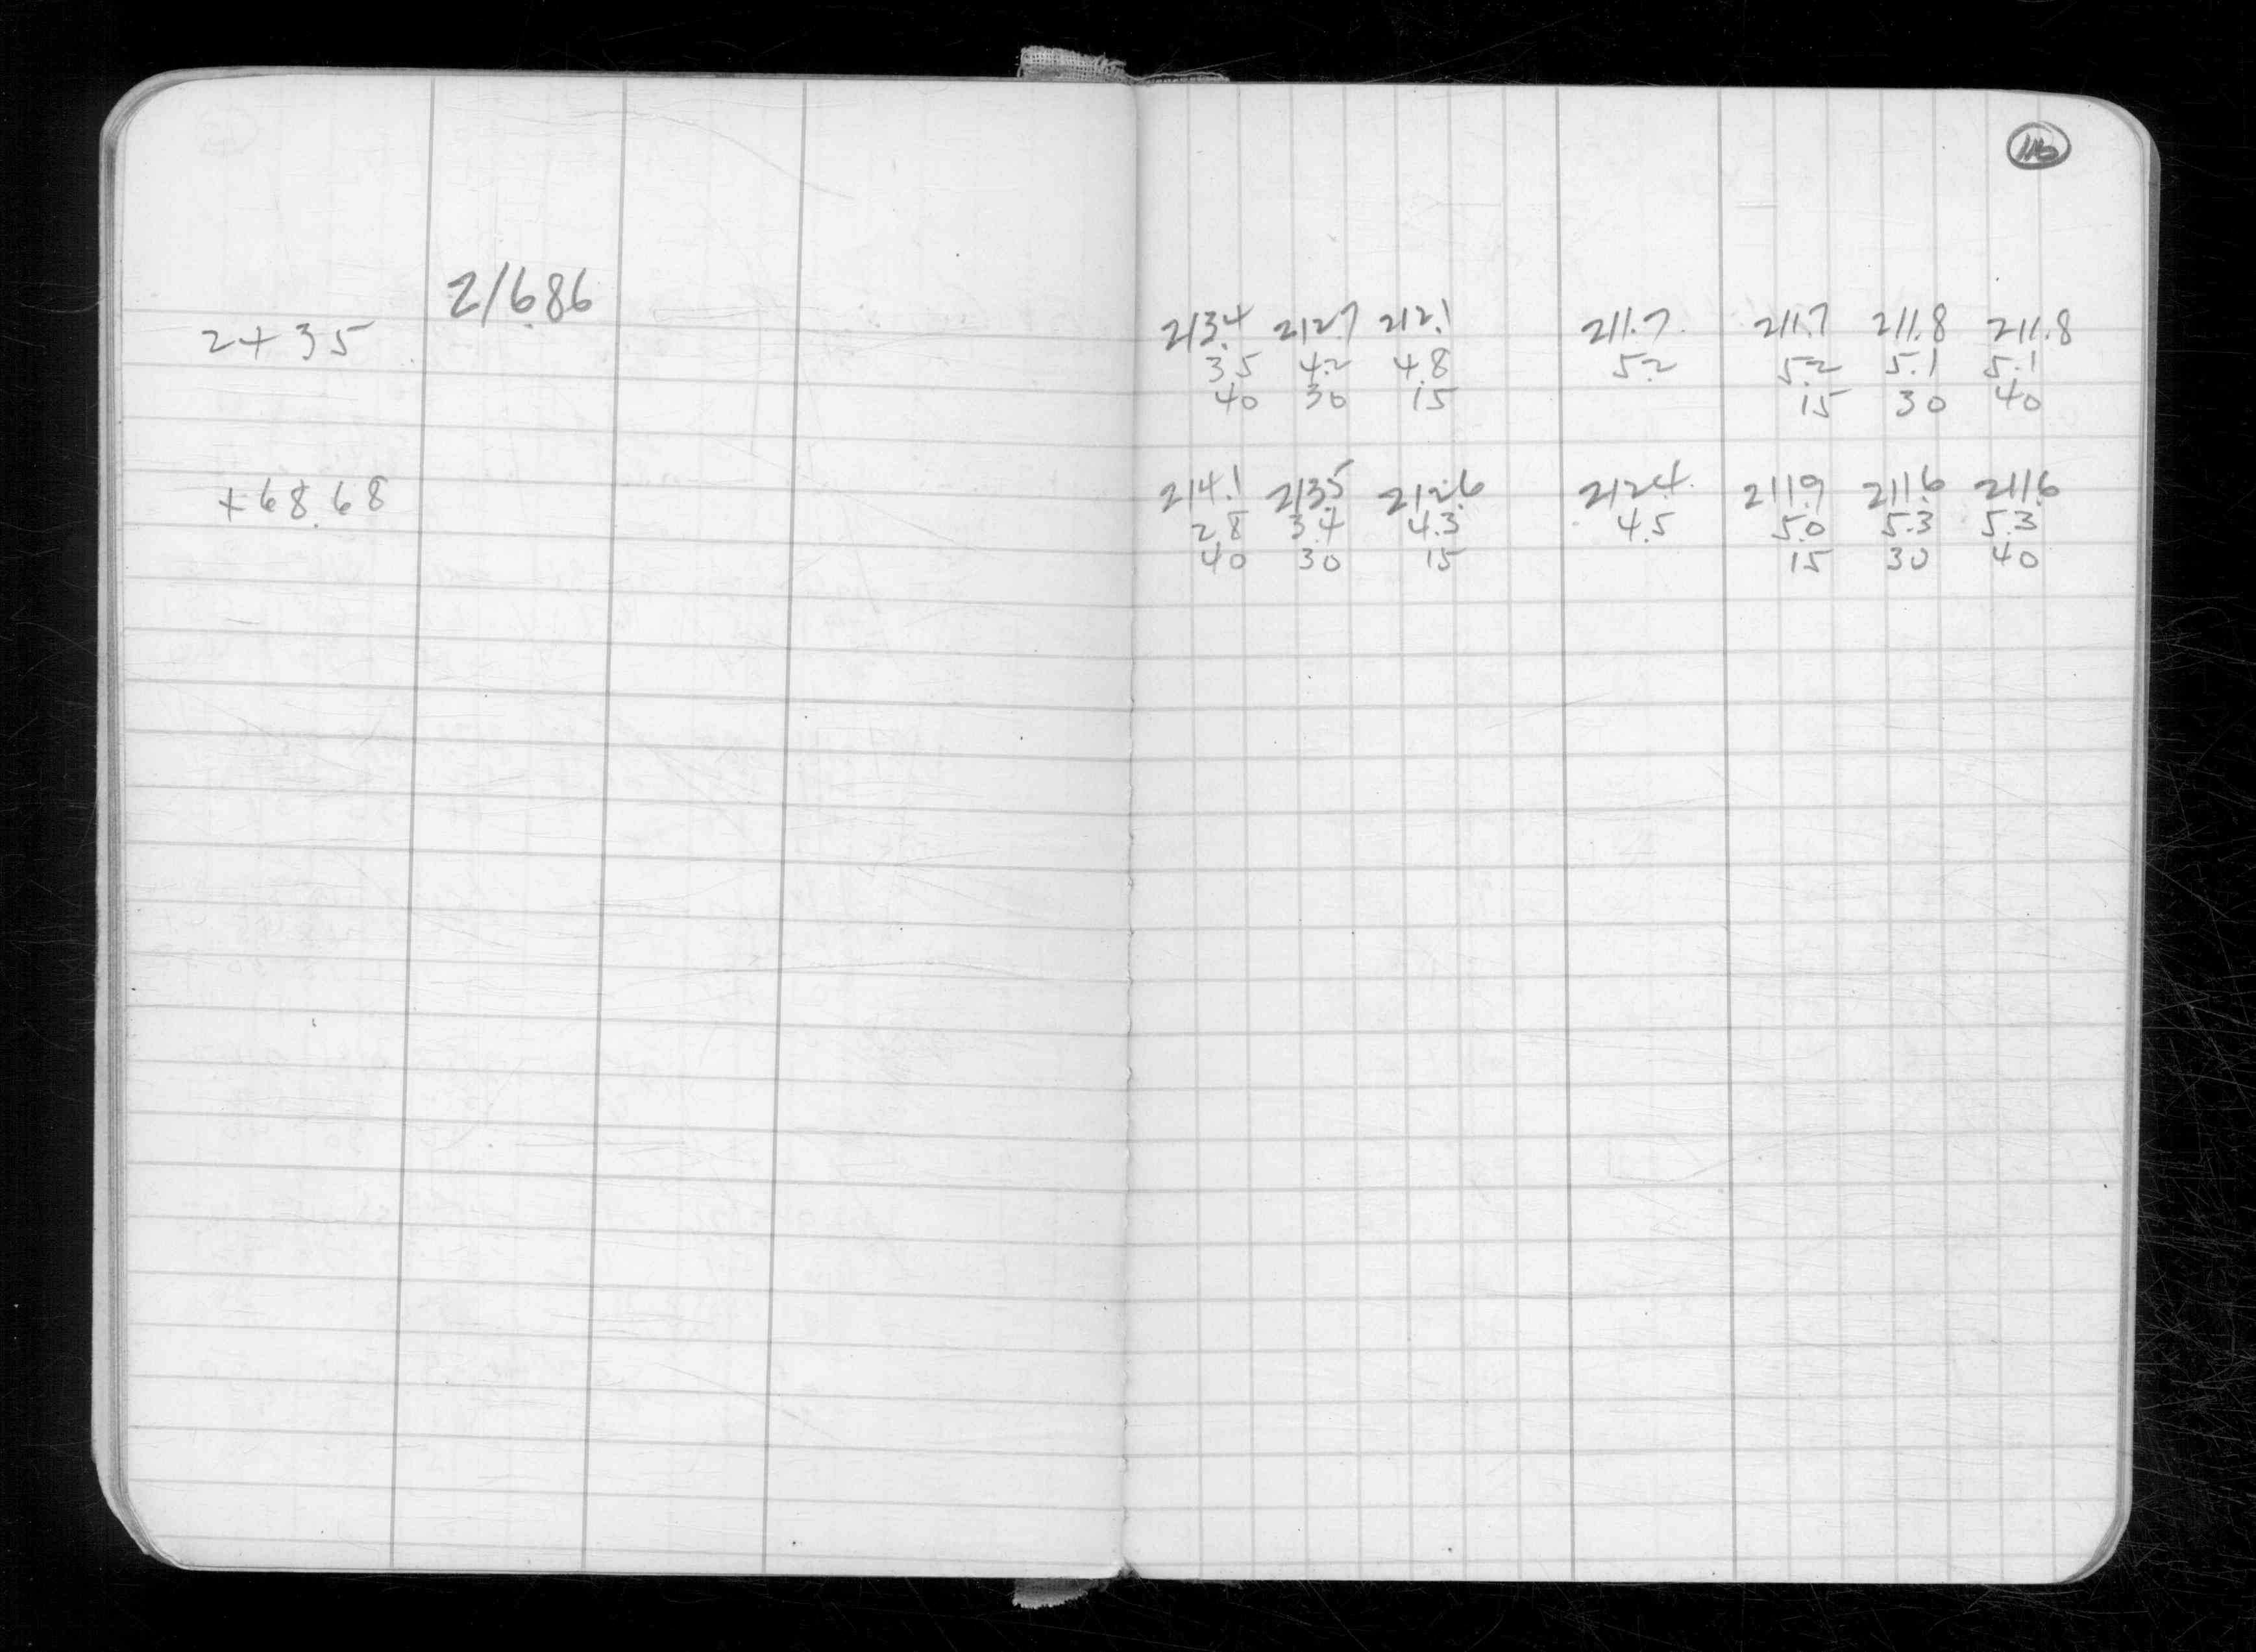 116
216.86
2+35 213.4 212.7 212.1 211.7 211.7 211.8 211.8
3.5 4.2 4.8 5.2 5.2 5.1 5.1
40 30 15 15 30 40
+68.68 214.1 213.5 212.6 212.4 211.9 211.6 211.6
2.8 3.4 4.3 4.5 5.0 5.3 5.3
40 30 15 15 30 40